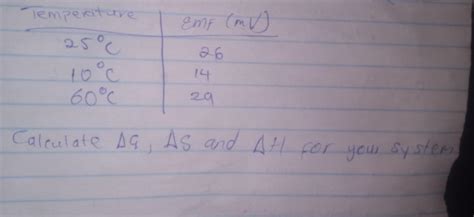 Temperature Emf (mV)
25°C 26
10°C 14
60°C 29
Calculate ΔG, ΔS and ΔH for your system